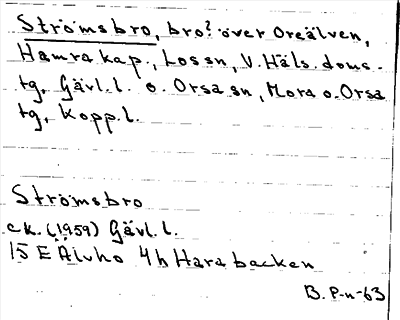 Strömsbro, bro? över Oreälven,
Hamra kap., Los sn, V. Häls. doms-
tg, Gävl. l. o. Orsa sn, Mora o. Orsa
tg, Kopp. l.
Strömsbro
e.k. (1959) Gävl. l.
15 E Älvho 4 h Hara backen
B. P-n -63